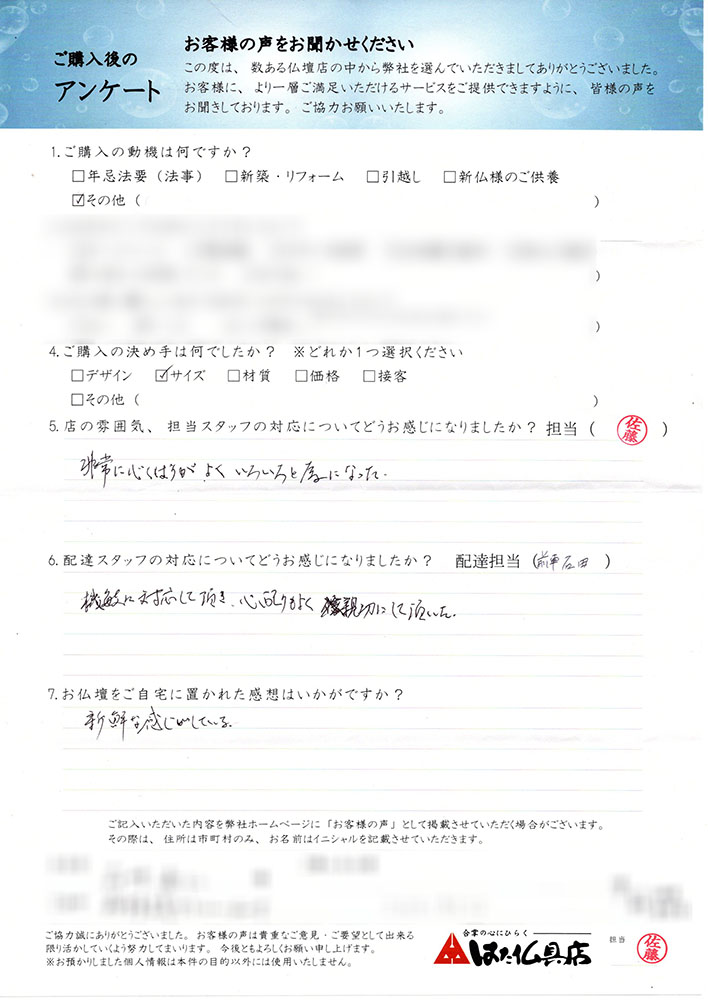 ご購入後の
アンケート
お客様の声をお聞かせください
この度は、数ある仏壇店の中から弊社を選んでいただきましてありがとうございました。
お客様に、より一層ご満足いただけるサービスをご提供できますように、皆様の声を
お聞きしております。ご協力お願いいたします。
1.ご購入の動機は何ですか？
□年忌法要（法事） □新築・リフォーム □引越し □新仏様のご供養
☑その他（ ）
）
）
4.ご購入の決め手は何でしたか？ ※どれか1つ選択ください
□デザイン ☑サイズ □材質 □価格 □接客
□その他（ ）
5.店の雰囲気、担当スタッフの対応についてどうお感じになりましたか？ 担当（ 佐藤 ）
非常に心くばりがよくいろいろと為になった.
6.配達スタッフの対応についてどうお感じになりましたか？ 配達担当（ 石田 ）
機敏に対応して頂き、心配りもよく 親切にして頂いた.
7.お仏壇をご自宅に置かれた感想はいかがですか？
新鮮な感じがしている.
ご記入いただいた内容を弊社ホームページに「お客様の声」として掲載させていただく場合がございます。
その際は、住所は市町村のみ、お名前はイニシャルを記載させていただきます。
ご協力誠にありがとうございました。お客様の声は貴重なご意見・ご要望として出来る
限り活かしていくよう努力してまいります。今後ともよろしくお願い申し上げます。
※お預かりしました個人情報は本件の目的以外には使用いたしません。
合掌の心にひらく
はた仏具店
担当 佐藤